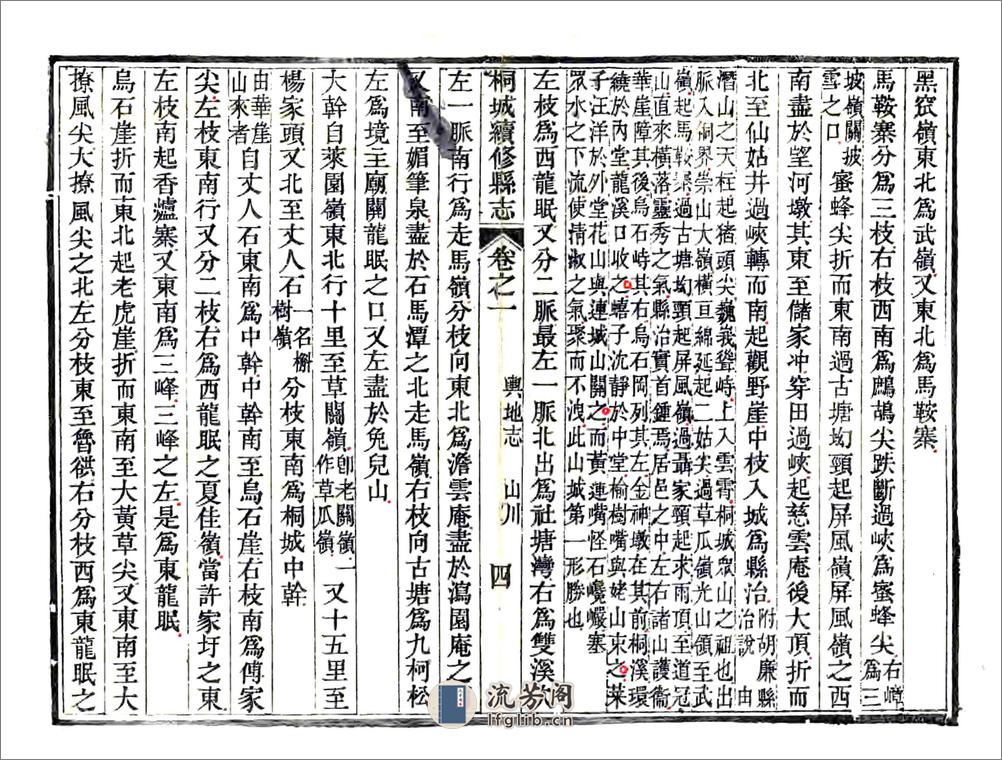 黑窊嶺東北爲武嶺又東北爲馬鞍寨
馬鞍寨分爲三枝右枝西南爲鷓鴣尖跌斷過峽爲蜜蜂尖右嶂爲三
坡嶺關坡雪之口蜜蜂尖折而東南過古塘㘭頸起屏風嶺屏風嶺之西
南盡於望河墩其東至儲家冲穿田過峽起慈雲庵後大頂折而
北至仙姑井過峽轉而南起觀野崖中枝入城爲縣治附胡廉縣治說由
潛山之天柱起猪頭尖巍峩聳峙上入雲霄桐城眾山之祖也出
脈入桐界崇山大嶺橫亘綿延起二姑尖過草瓜嶺光山領至武
嶺起馬鞍寨過古塘㘭頸起屏風嶺過聶家頸起求雨頂至道冠
山直來橫落靈秀之氣縣治實首鍾焉居邑之中左右諸山護衞
華崖障其後烏石峙其右烏石岡列其左金神墩在其前桐溪環
繞於內堂龍溪口收之蟢子沈靜於中堂榆樹嘴與姥山束之菜
子汪洋於外堂花山與連城山關之而黃蓮嘴怪石巉巖塞
眾水之下流使淸淑之氣聚而不洩此山城第一形勝也
左枝爲西龍眠又分二脈最左一脈北出爲社塘灣右爲雙溪
桐城續修縣志 卷之一 輿地志 山川 四
左一脈南行爲走馬嶺分枝向東北爲澹雲庵盡於瀉園庵之
又南至媚筆泉盡於石馬潭之北走馬嶺右枝向古塘爲九柯松
左爲境主廟關龍眠之口又左盡於免兒山
大幹自萊園嶺東北行十里至草關嶺卽老關嶺一作草瓜嶺又十五里至
楊家頭又北至丈人石一名槲樹嶺分枝東南爲桐城中幹
由華崖山來者自丈人石東南爲中幹中幹南至烏石崖右枝南爲傅家
尖左枝東南行又分二枝右爲西龍眠之夏佳嶺當許家圩之東
左枝南起香爐寨又東南爲三峰三峰之左是爲東龍眠
烏石崖折而東北起老虎崖折而東南至大黃草尖又東南至大
撩風尖大撩風尖之北左分枝東至魯谼右分枝西爲東龍眠之
流芳阁
lfglib.cn